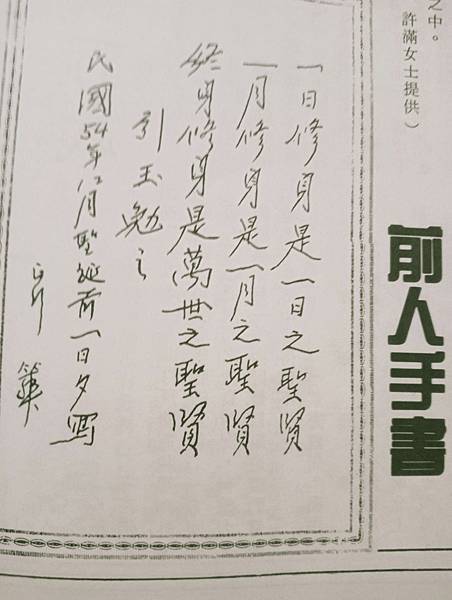 之中。
許滿女士提供）
前人手書
一日修身是一日之聖賢
一月修身是一月之聖賢
終身修身是萬世之聖賢
引玉勉之
民國54年12月聖誕前一日夕寫